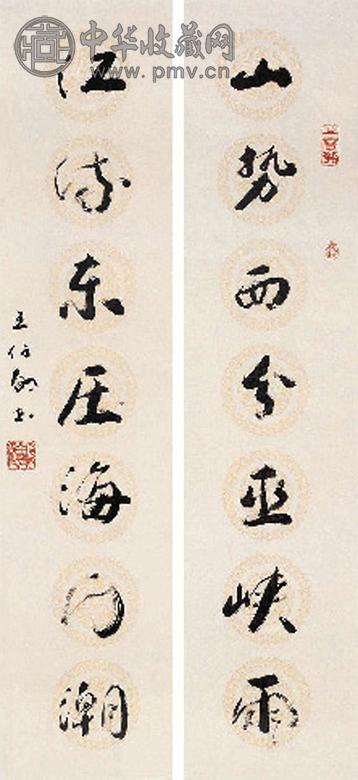 中华收藏网
www.pmv.cn
山势西分巫峡雨
江流东压海门潮
王伯敏书